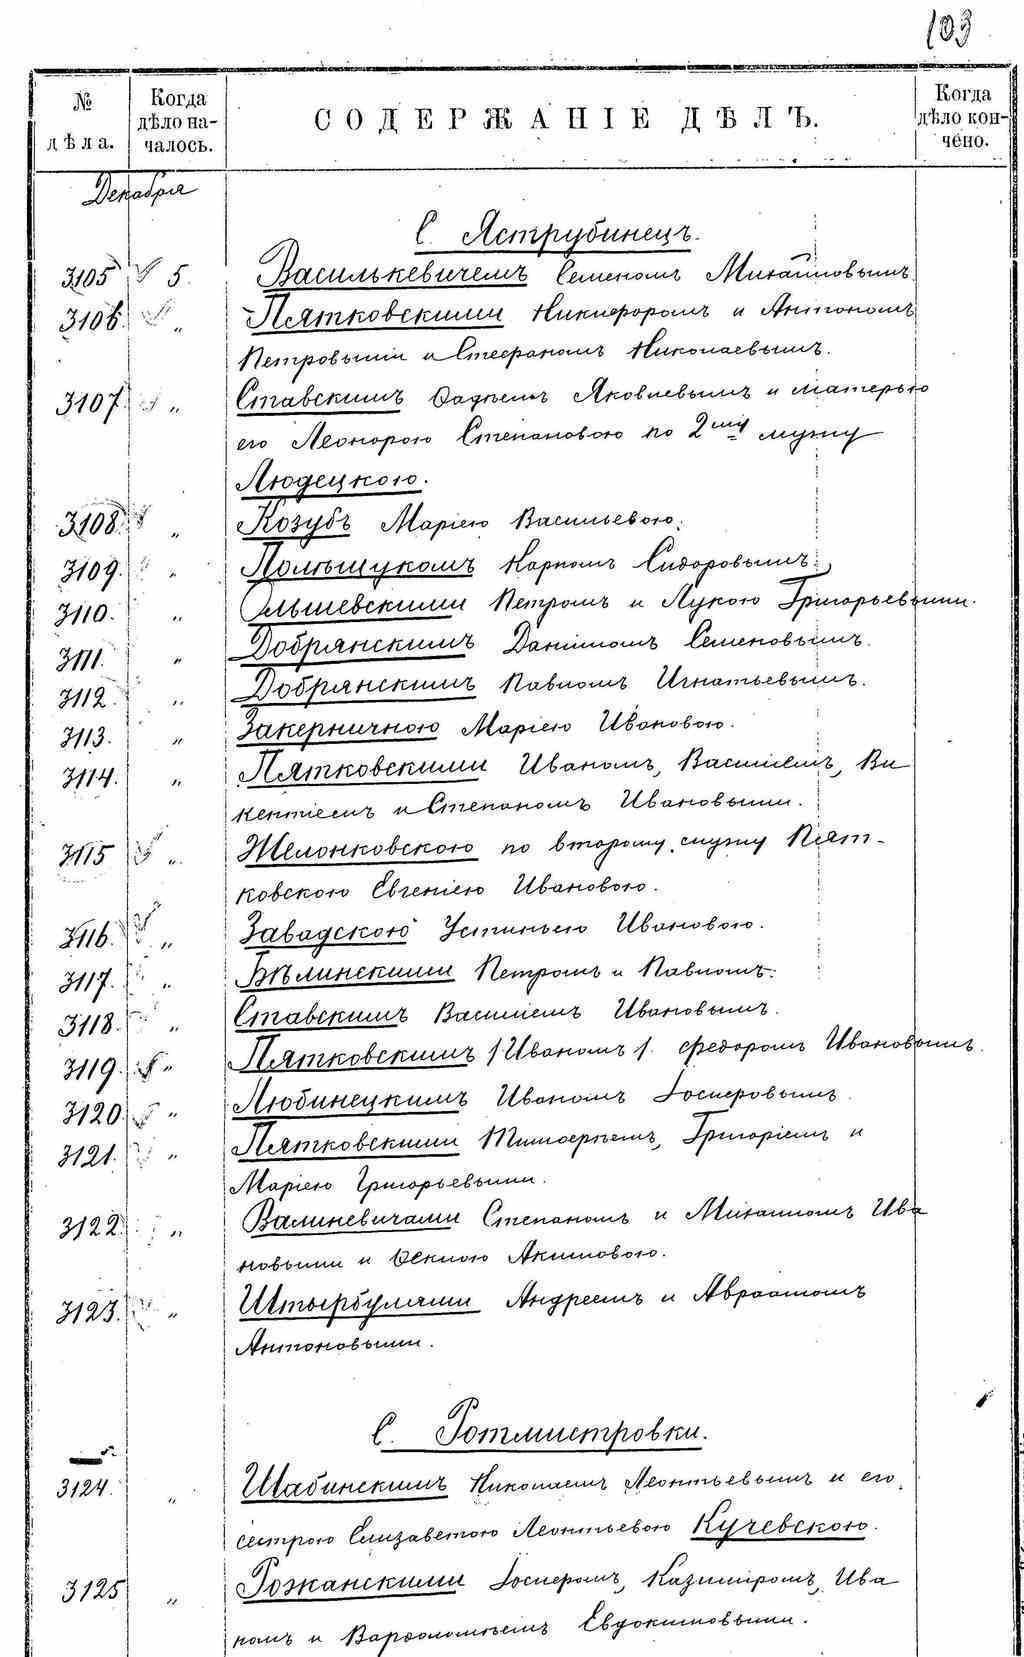 103
№ дѣла. Когда дѣло началось. СОДЕРЖАНІЕ ДѢЛЪ. Когда дѣло кончено.
Декабря
С. Яструбинецъ.
3105 5. Василькевичемъ Семеномъ Михайловымъ
3106. „ Пятковскими Никифоромъ и Антономъ
Петровыми и Стефаномъ Николаевымъ.
3107. „ Ставскимъ Фадѣемъ Яковлевымъ и матерью
его Леонорою Степановою по 2му мужу
Людецкою.
3108. „ Козубъ Маріею Васильевою.
3109. „ Полѣщукомъ Карпомъ Сидоровымъ.
3110. „ Ольшевскими Петромъ и Лукою Григорьевыми.
3111. „ Добрянскимъ Даниломъ Семеновымъ.
3112. „ Добрянскимъ Павломъ Игнатьевымъ.
3113. „ Закерничною Маріею Ивановою.
3114. „ Пятковскими Иваномъ, Василіемъ, Ви
кентіемъ и Степаномъ Ивановыми.
3115 „ Желонковскою по второму мужу Пят-
ковскою Евгеніею Ивановою.
3116. „ Завадскою Устиньею Ивановою.
3117. „ Бѣлинскими Петромъ и Павломъ.
3118. „ Ставскимъ Василіемъ Ивановымъ.
3119. „ Пятковскимъ /Иваномъ/. Федоромъ Ивановымъ.
3120. „ Любинецкимъ Иваномъ Іосифовымъ.
3121. „ Пятковскими Тимофѣемъ, Григоріемъ и
Маріею Григорьевыми.
3122. „ Валиневичами Степаномъ и Михаиломъ Ива
новыми и Феклою Акимовою.
3123. „ Штырбулями Андреемъ и Авраамомъ
Антоновыми.
С. Ротмистровки.
3124. „ Шабинскимъ Николаемъ Леонтьевымъ и его
сестрою Елизаветою Леонтьевою Кучевскою.
3125 „ Рожанскими Іосифомъ, Казиміромъ, Ива
номъ и Варфоломѣемъ Евдокимовыми.